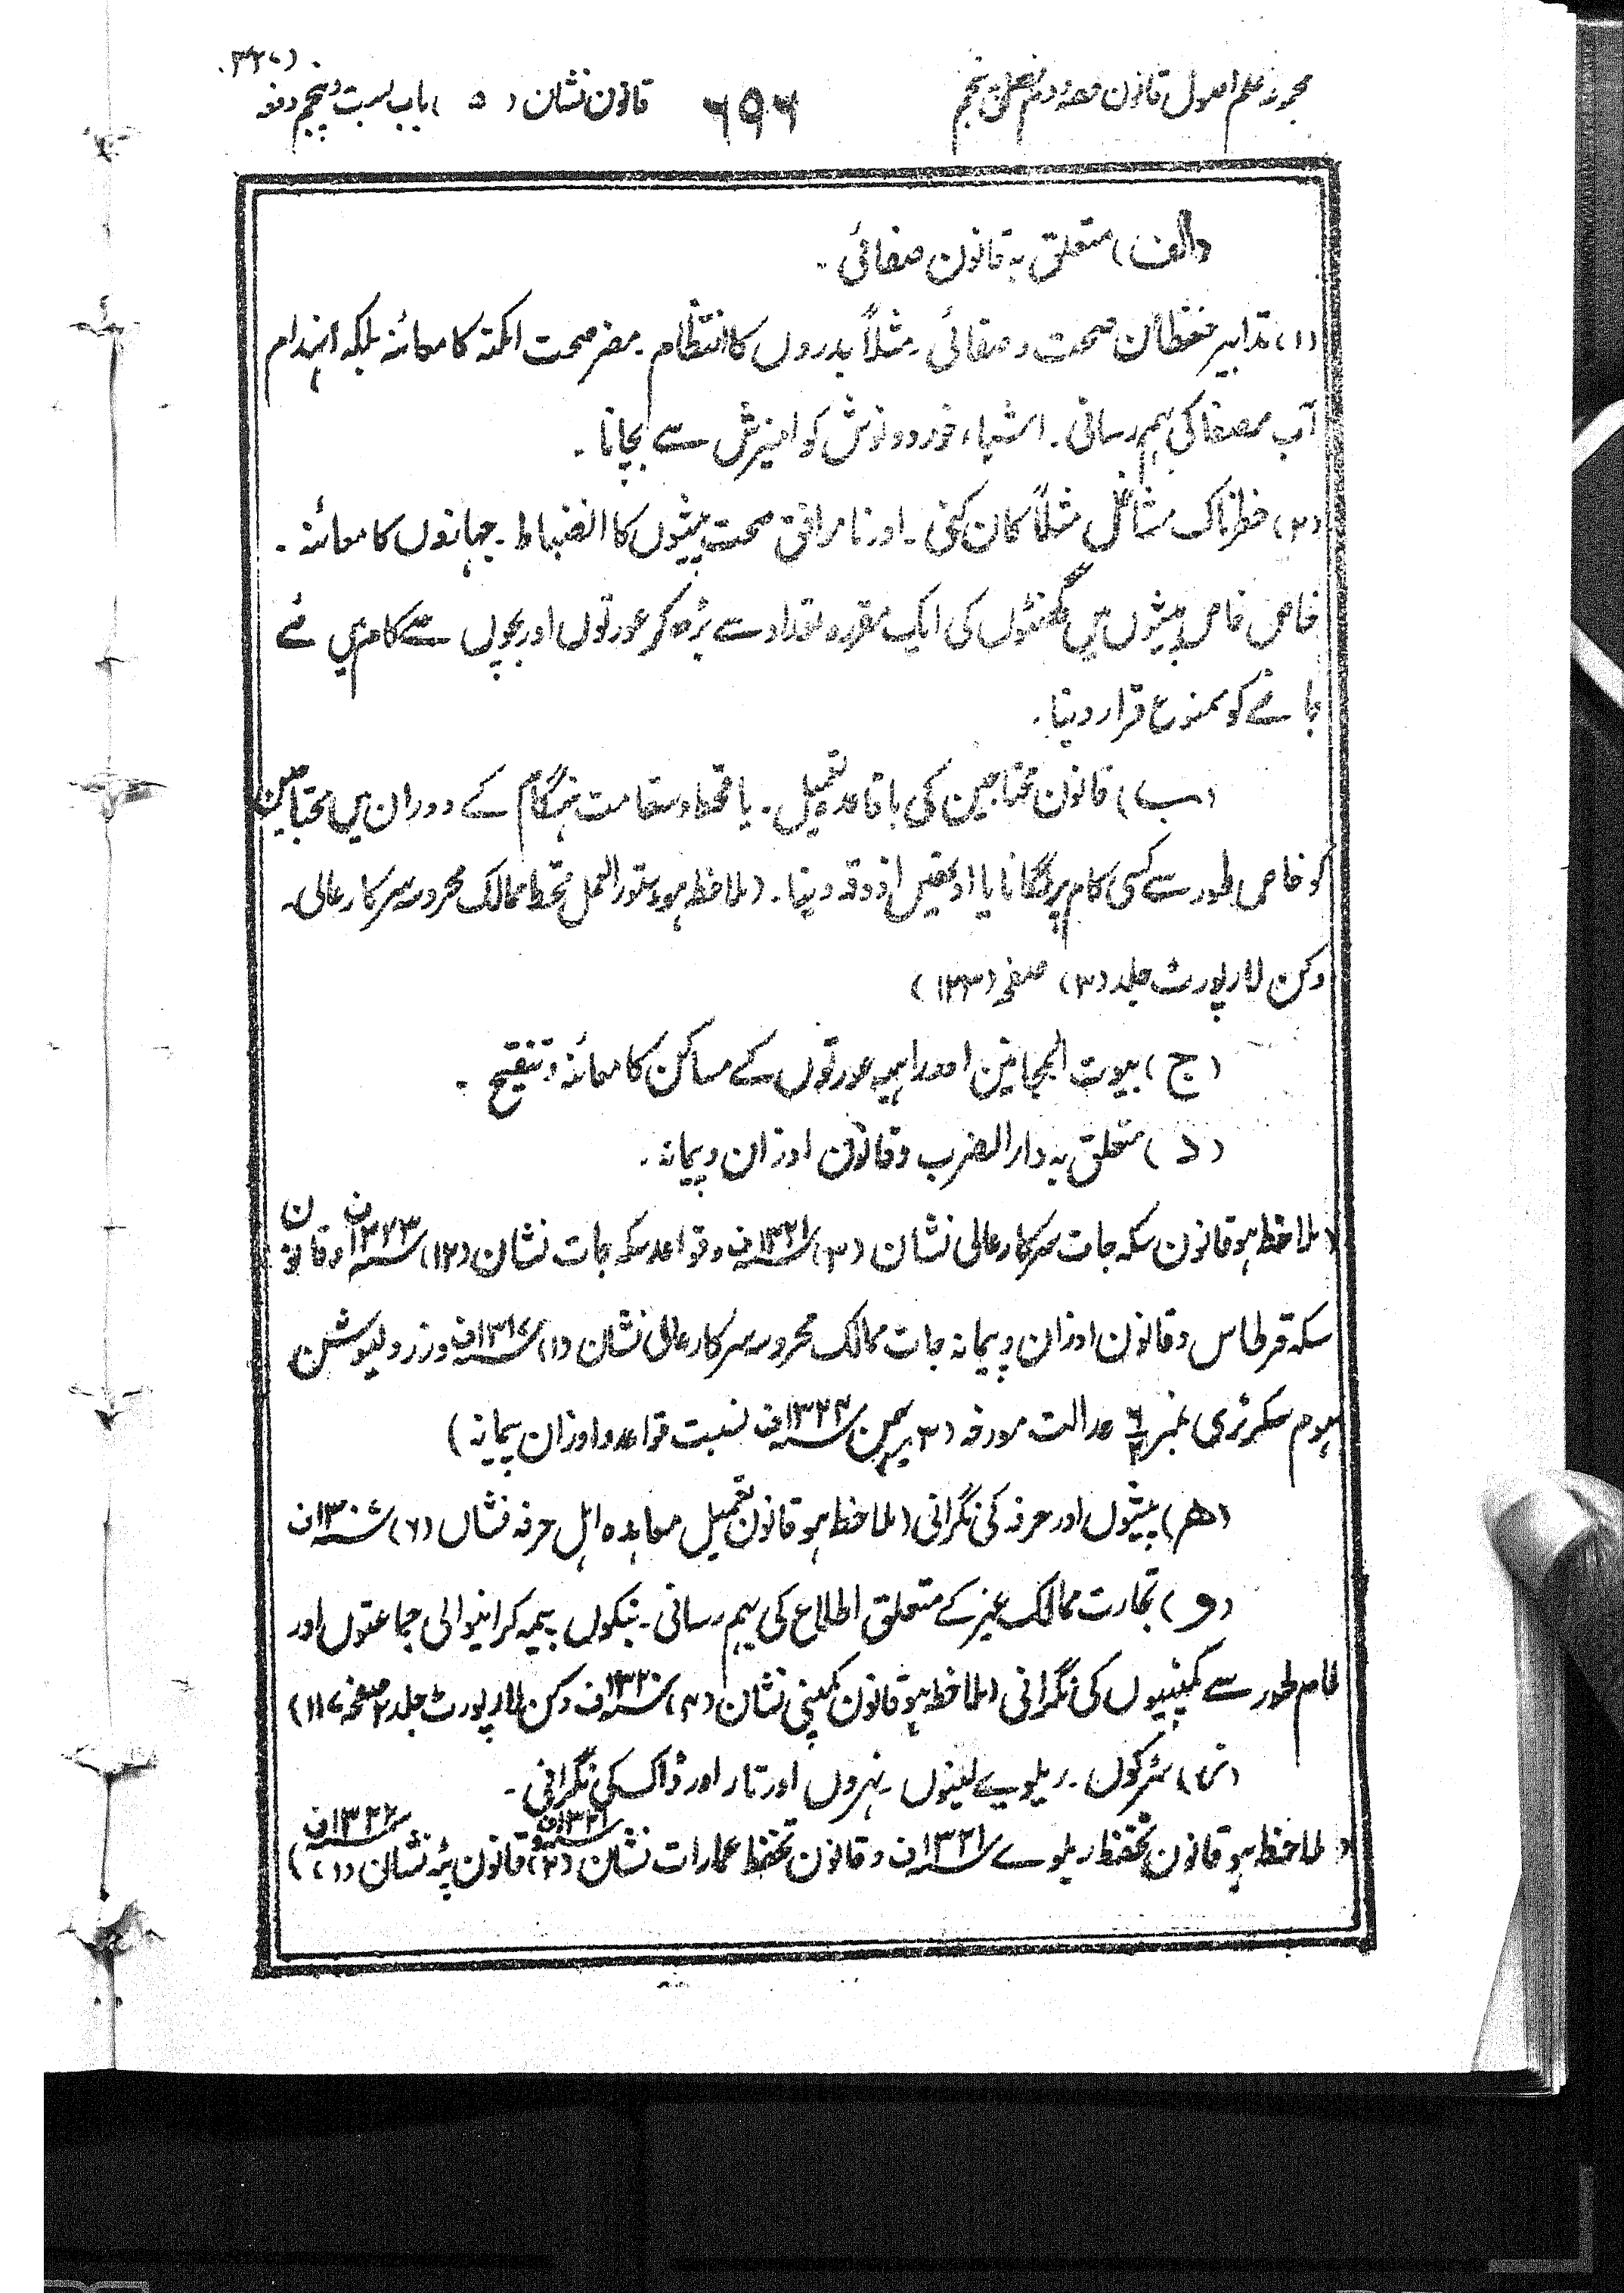 (۳۲۷)
مجموعہ علم اصول قانون حصہ دوم فصل پنجم ۶۹۶ قانون نشان (۵) باب بست و پنجم دفعہ
(الف) متعلق بہ قانون صفائی ۔
(۱) تدابیر حفظان صحت و صفائی ۔ مثلاً بدروں کا انتظام ۔ مضر صحت امکنہ کا معائنہ بلکہ انہدام
آب مصفا کی بہم رسانی ۔ اشیاء خورد و نوش کو امیزش سے بچانا ۔
(۲) خطرناک مشاغل مثلاً کان کنی ۔ اور نا موافق صحت پیشوں کا انضباط ۔ جہازوں کا معائنہ ۔
خاص خاص پیشوں میں گھنٹوں کی ایک مقررہ تعداد سے بڑھ کر عورتوں اور بچوں سے کام لئے
جانے کو ممنوع قرار دینا ۔
(ب) قانون محتاجین کی باقاعدہ تعمیل ۔ یا قحط و سقامت ہنگام کے دوران میں محتاجین
کو خاص طور سے کسی کام پر لگانا یا اونھیں اذوقہ دینا ۔ (ملاحظہ ہو دستور العمل قحط ممالک محروسہ سرکار عالی ۔
دکن لا رپورٹ جلد (۳) صفحہ (۱۳۳)
(ج) بیوت المجانین اور ایسے عورتوں کے مساکن کا معائنہ و تنقیح ۔
(د) متعلق بہ دار الضرب و قانون اوزان و پیمانہ ۔
(ملاحظہ ہو قانون سکہ جات سرکار عالی نشان (۳) سنہ ۱۳۲۱ ف و قواعد سکہ جات نشان (۱۲) سنہ ۱۳۲۳ ف و قانون
سکہ قرطاس و قانون اوزان و پیمانہ جات ممالک محروسہ سرکار عالی نشان (۱) سنہ ۱۳۱۷ ف و رزولیوشن
ہوم سکرٹری نمبر عدالت مورخہ (۳ بہمن سنہ ۱۳۲۴ ف نسبت قواعد و اوزان پیمانہ)
(ھ) پیشوں اور حرفہ کی نگرانی (ملاحظہ ہو قانون تعمیل معاہدہ اہل حرفہ نشاں (۶) سنہ ۱۳۰۷ ف
(و) تجارت ممالک غیر کے متعلق اطلاع کی بہم رسانی ۔ بنکوں بیمہ کرانیوالی جماعتوں اور
عام طور سے کمپنیوں کی نگرانی (ملاحظہ ہو قانون کمپنی نشان (۴) سنہ ۱۳۲۰ ف دکن لا رپورٹ جلد ۲ صفحہ ۱۱۷)
(ز) سڑکوں ۔ ریلویے لینوں ۔ نہروں اور تار اور ڈاک کی نگرانی ۔
(ملاحظہ ہو قانون تحفظ ریلوے سنہ ۱۳۲۱ ف و قانون تحفظ عمارات نشان (۲) سنہ ۱۳۲۱ ف و قانون پٹہ نشان (۱) سنہ ۱۳۲۲ ف)